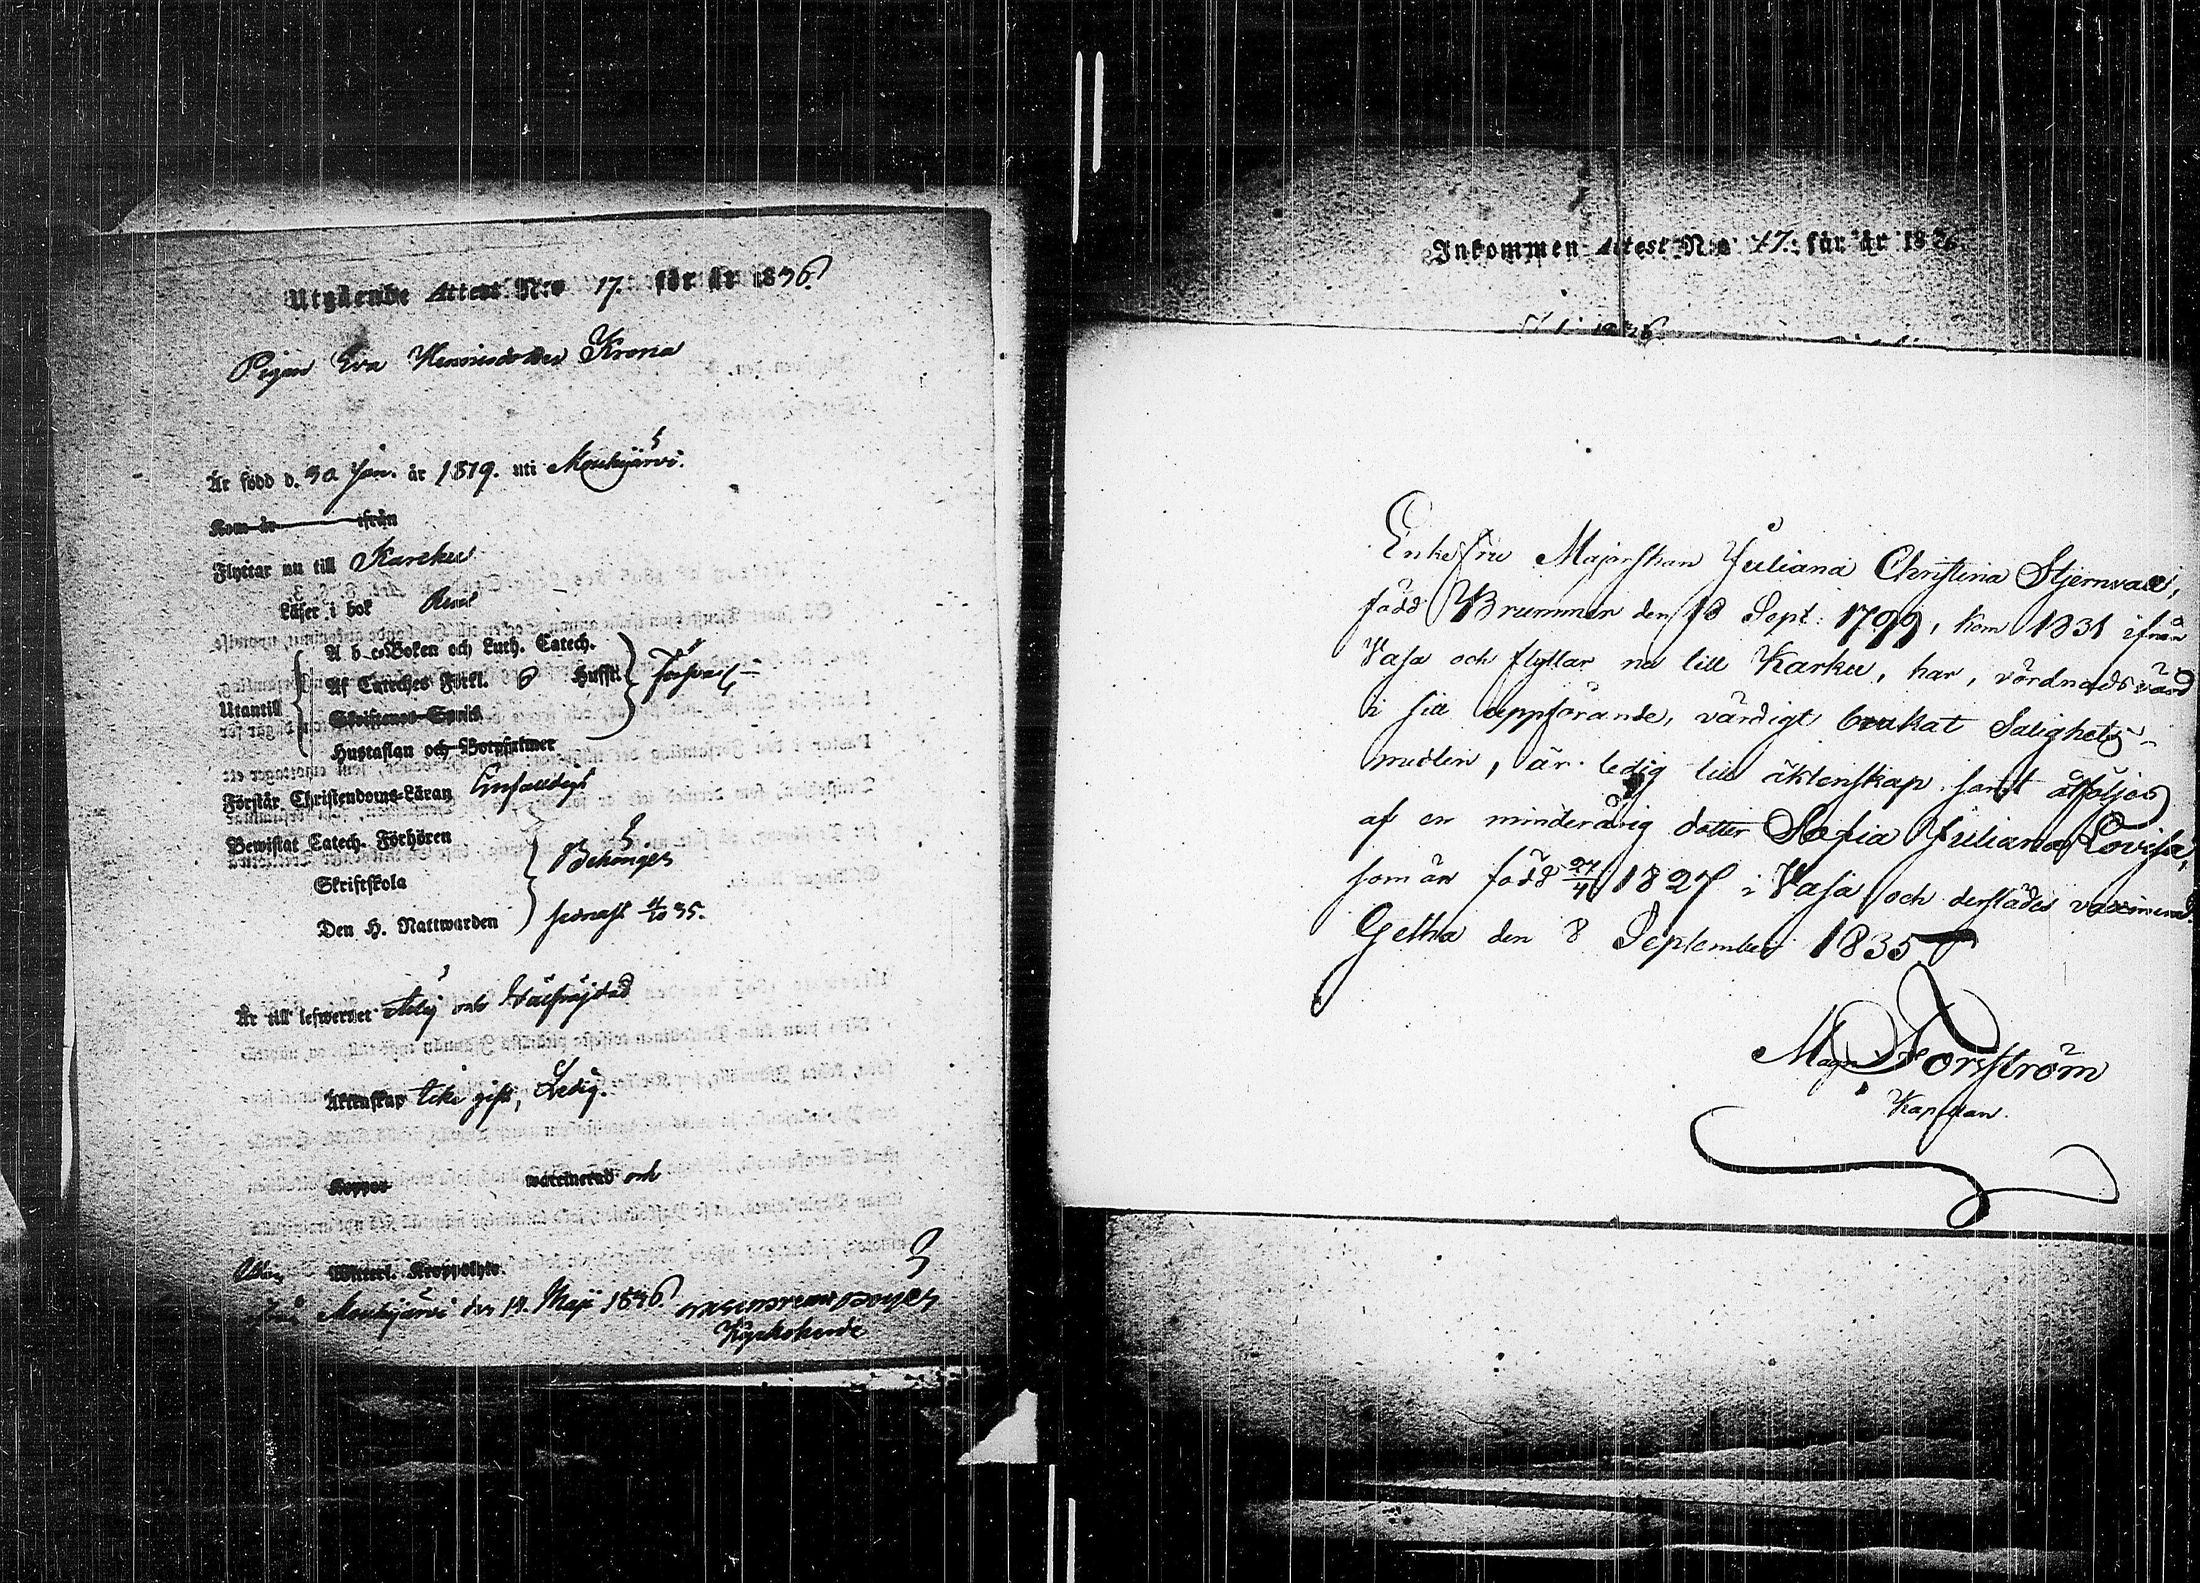 Utgående Attest N:o 17. för år 1836.
Pigan Eva Henriksdotter Krona
Är född d. 30 Jan. år 1819. uti Mouhijärvi.
Kom år ifrån
Flyttar nu till Karcku
Läser i bok Rent
A b c-Boken och Luth. Catech.
Af Cateches Förkl. 6 Husstl. Försvarl.
Utantill
Skriftenes Spräk
Hustaflan och Botpsalmer
Förstår Christendoms-Läran Enfaldigt
Bewistat Catech. Förhören
Skriftskola Behörigen
Den H. Nattwarden senast 4/10 35.
Är till lefwernet ärlig och Wälfräjdad
Äktenskap Icke gift, Ledig.
Koppor waccinerad och
utan Witterl. Kroppslyte.
Mouhijärvi den 14. Maji 1836.
Kyrkoherde
Inkommen Attest N:o 17. för år 1836.
1836
Enkefru Majorskan Juliana Christina Stjernvall,
född Brummer den 18 Sept. 1799, kom 1831 ifrån
Vasa och flyttar nu till Karku, har, vördnadsvärd
i sitt uppförande, värdigt brukat Salighets-
medlen, är ledig till äktenskap samt åtföljes
af en minderårig dotter Sofia Juliana Lovisa,
som är född 27/4 1827 i Vasa och derstädes vaccinerad.
Getha den 8 September 1835
Magn. Forsström
Kapellan.